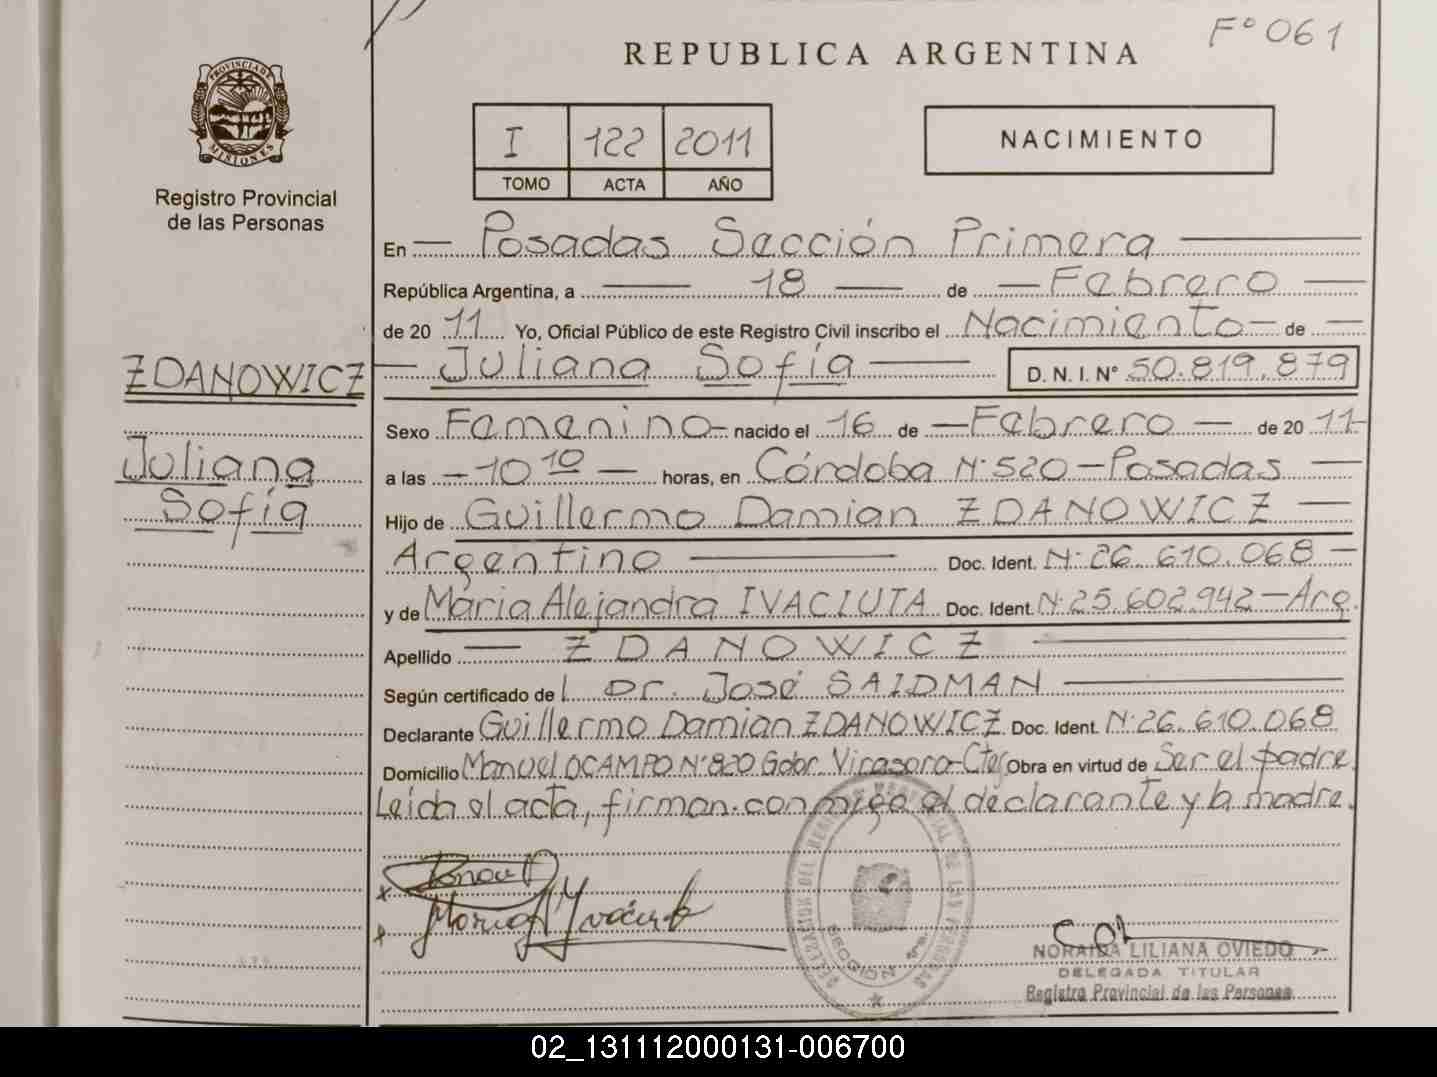 Fº 061
REPUBLICA ARGENTINA
PROVINCIA DE
MISIONES
Registro Provincial
de las Personas
I 122 2011
TOMO ACTA AÑO
NACIMIENTO
En Posadas Sección Primera
República Argentina, a 18 de Febrero
de 2011 Yo, Oficial Público de este Registro Civil inscribo el Nacimiento de
Juliana Sofía D. N. I. Nº 50.819.879
ZDANOWICZ
Juliana
Sofía
Sexo Femenino nacido el 16 de Febrero de 2011
a las 10 10 horas, en Córdoba Nº 520 - Posadas
Hijo de Guillermo Damian ZDANOWICZ
Argentino Doc. Ident. Nº 26.610.068
y de María Alejandra IVACIUTA Doc. Ident. Nº 25.602.942 - Arg.
Apellido ZDANOWICZ
Según certificado de Dr. José SAIDMAN
Declarante Guillermo Damian ZDANOWICZ Doc. Ident. Nº 26.610.068
Domicilio Manuel OCAMPO Nº 820 Gdor. Virasoro - Ctes Obra en virtud de Ser el padre.
Leída el acta, firman conmigo el declarante y la madre.
SECCION 1ra.
NORAIDA LILIANA OVIEDO
DELEGADA TITULAR
Registro Provincial de las Personas
02_131112000131-006700